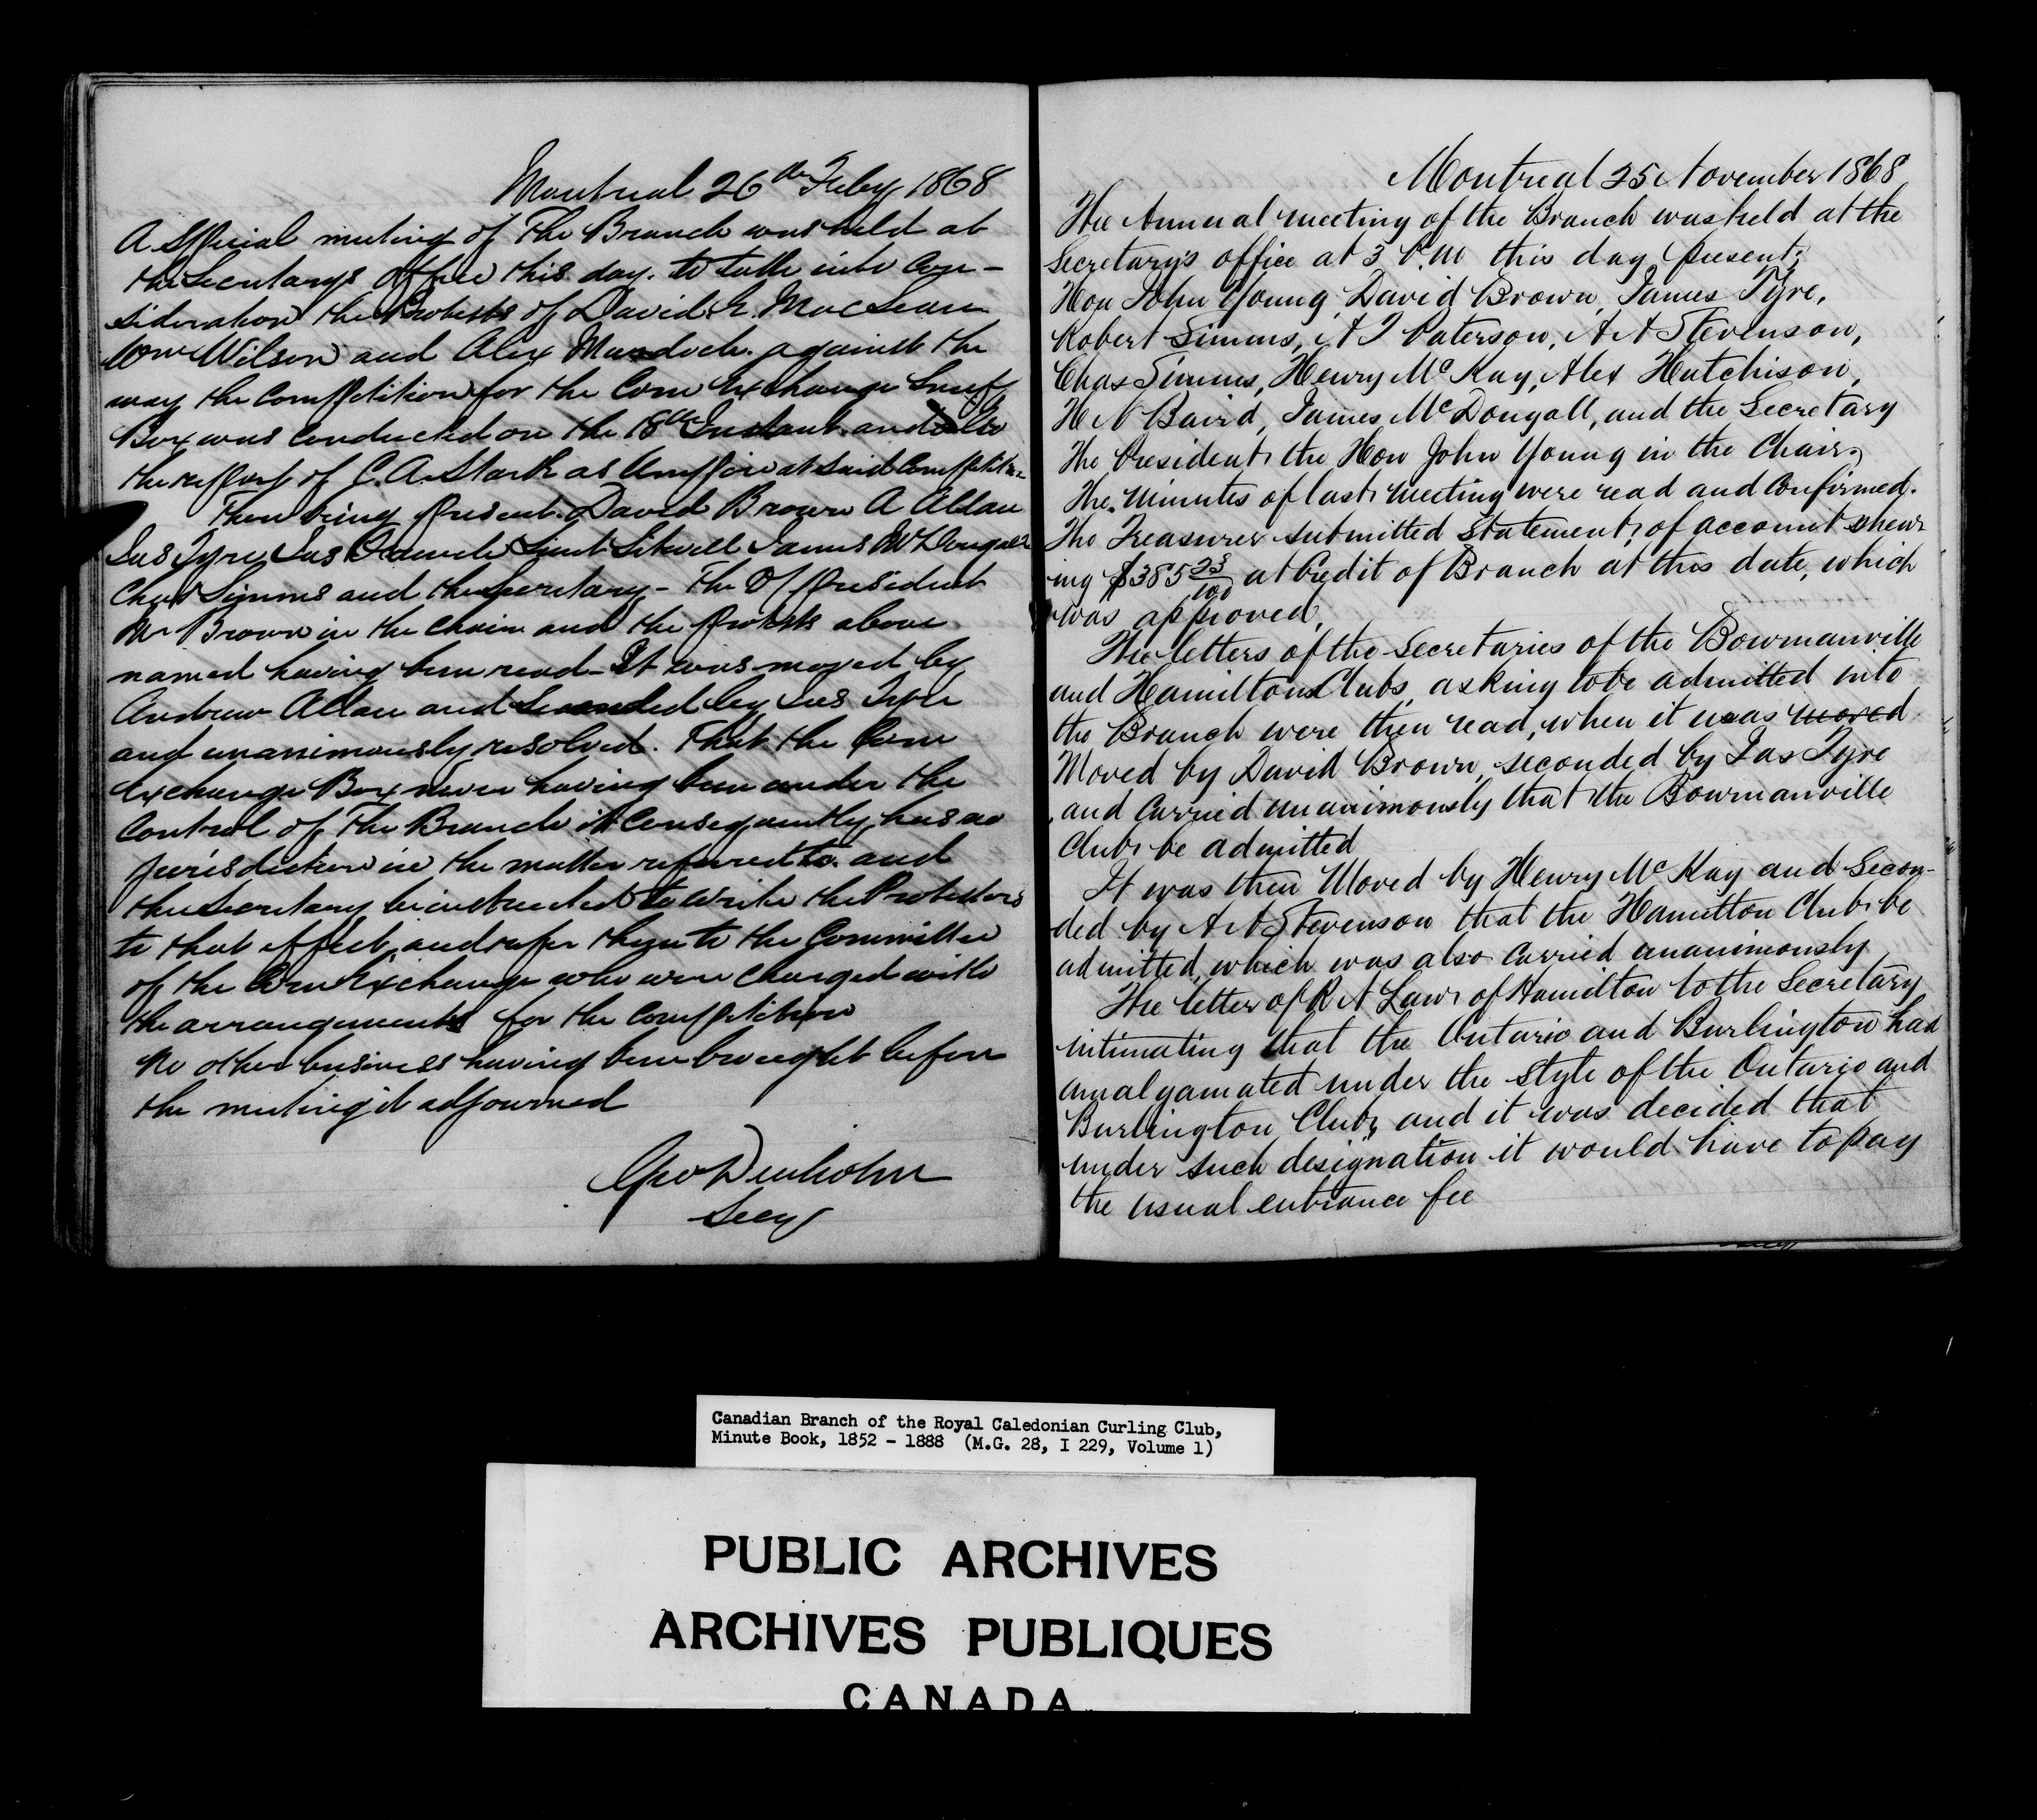 Montreal 26th Feby 1868
A Special meeting of The Branch was held at
the Secretarys Office this day. to take into Con-
sideration the Protests of David E. MacLean
Wm Wilson and Alex Murdoch. against the
way the Competition for the Corn Exchange Snuff
Box was Conducted on the 18th Instant. and also
the report of C. A. Stark as Umpire at said Competition
There being present. David Brown A Allan
Jas Tyre, Jas Lieut Sitwell James McDougall
Chas Simms and the Secretary - The V President
Mr Brown in the Chair and the protests above
named having been read - It was moved by
Andrew Allan and Seconded by Jas Tyre
and unanimously resolved. That the Corn
Exchange Box never having been under the
Control of The Branch it Consequently has no
jurisdiction in the matter referred to. and
the Secretary be instructed to write the Protestors
to that effect, and refer them to the Committee
of the Corn Exchange who were charged with
the arrangements for the Competition
No other business having been brought before
the meeting it adjourned
Geo Denholm
Secy
Montreal 25 November 1868
The Annual meeting of the Branch was held at the
Secretary's office at 3 P.M this day, present;
Hon John Young, David Brown, James Tyre,
Robert Simms, A T Paterson, A A Stevenson,
Chas Simms, Henry McKay, Alex Hutchison,
H N Baird, James McDougall, and the Secretary
The President, the Hon John Young in the Chair,
The Minutes of last meeting were read and Confirmed.
The Treasurer submitted statement, of account shew-
ing $385 23/100 at Credit of Branch at this date, which
was approved,
The letters of the Secretaries of the Bowmanville
and Hamilton Clubs, asking to be admitted into
the Branch were then read, when it was moved
Moved by David Brown, seconded by Jas Tyre
and Carried unanimously that the Bowmanville
Club be admitted
It was then Moved by Henry McKay and Secon-
ded by A A Stevenson that the Hamilton Club be
admitted, which was also Carried unanimously
The letter of R A Law of Hamilton to the Secretary
intimating that the Ontario and Burlington had
amalgamated under the style of the Ontario and
Burlington Club, and it was decided that
under such designation it would have to pay
the usual entrance fee
Canadian Branch of the Royal Caledonian Curling Club,
Minute Book, 1852 - 1888 (M.G. 28, I 229, Volume 1)
PUBLIC ARCHIVES
ARCHIVES PUBLIQUES
CANADA